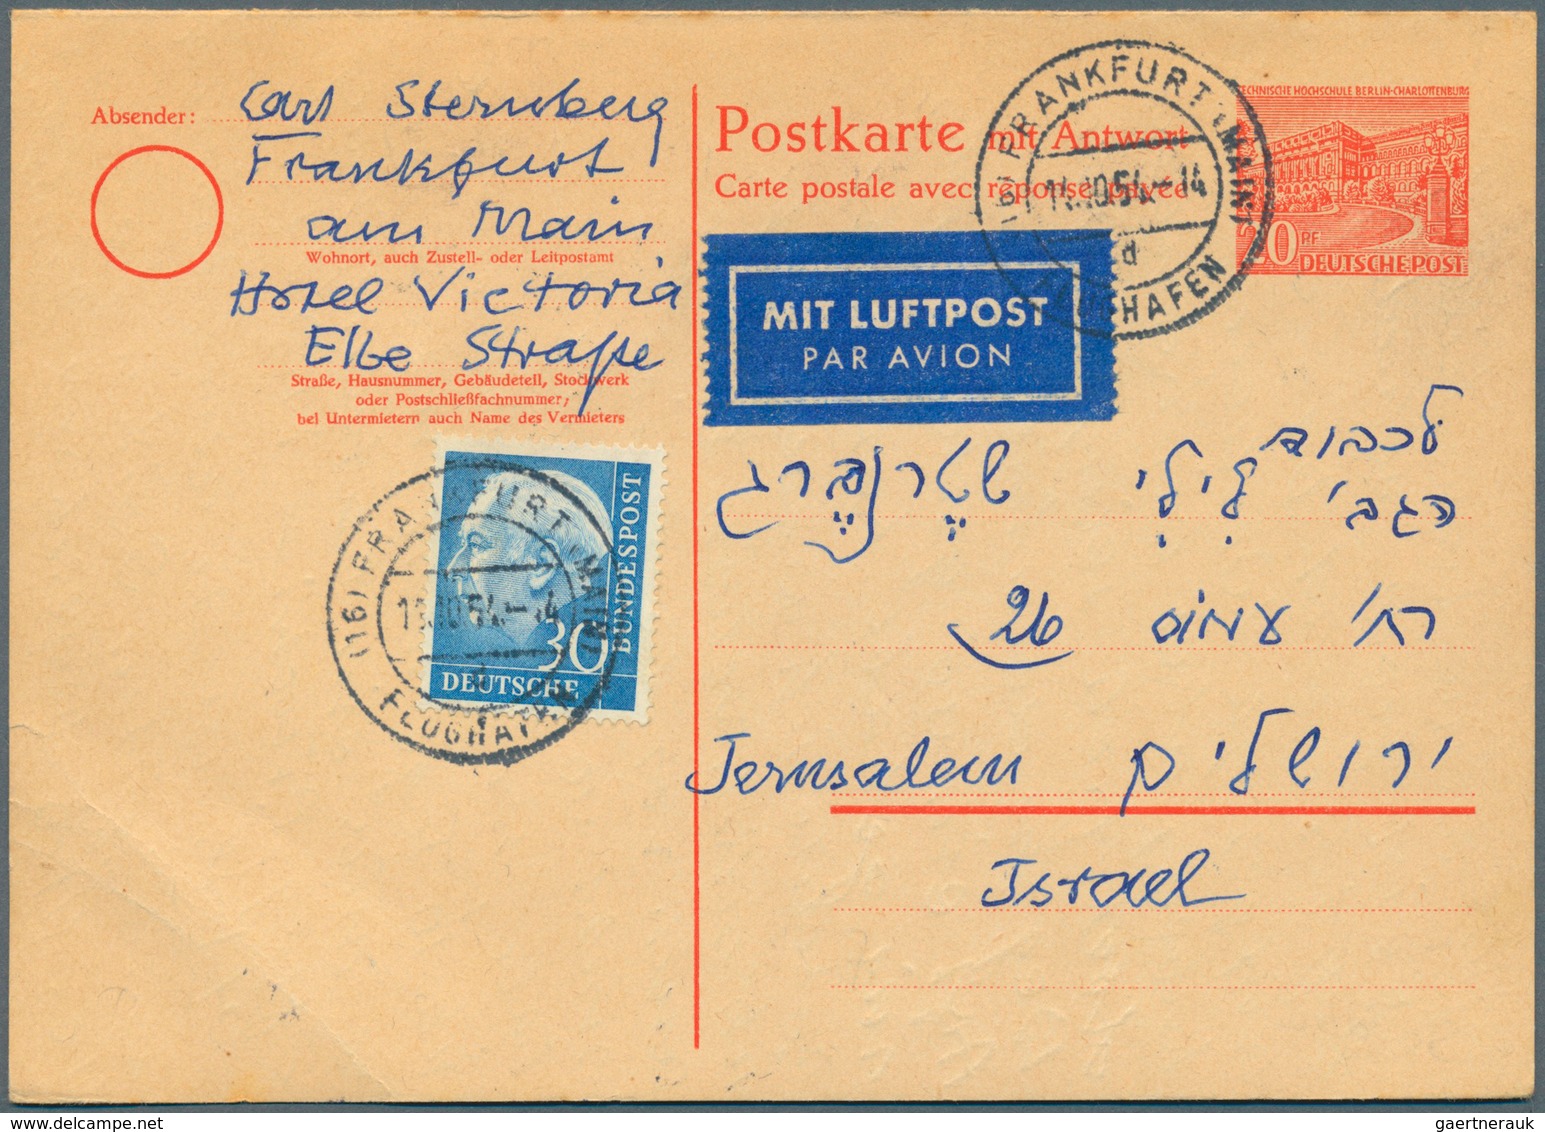 Absender: Carl Sternberg
Frankfurt
am Main
Wohnort, auch Zustell- oder Leitpostamt
Hotel Victoria
Elbe Straße
Straße, Hausnummer, Gebäudeteil, Stockwerk
oder Postschließfachnummer;
bei Untermietern auch Name des Vermieters
Postkarte mit Antwort
Carte postale avec réponse payée
TECHNISCHE HOCHSCHULE BERLIN-CHARLOTTENBURG
20 PF
DEUTSCHE POST
(16) FRANKFURT (MAIN)
14.10.54.-14
d
FLUGHAFEN
MIT LUFTPOST
PAR AVION
לכבוד
הגב' לִילִי שטֶרנבֶּרג
רח' עמוס 26
Jerusalem ירושלים
Israel
30
DEUTSCHE
BUNDESPOST
(16) FRANKFURT (MAIN)
FLUGHAFEN
gaertnerauk @ www.delcampe.net